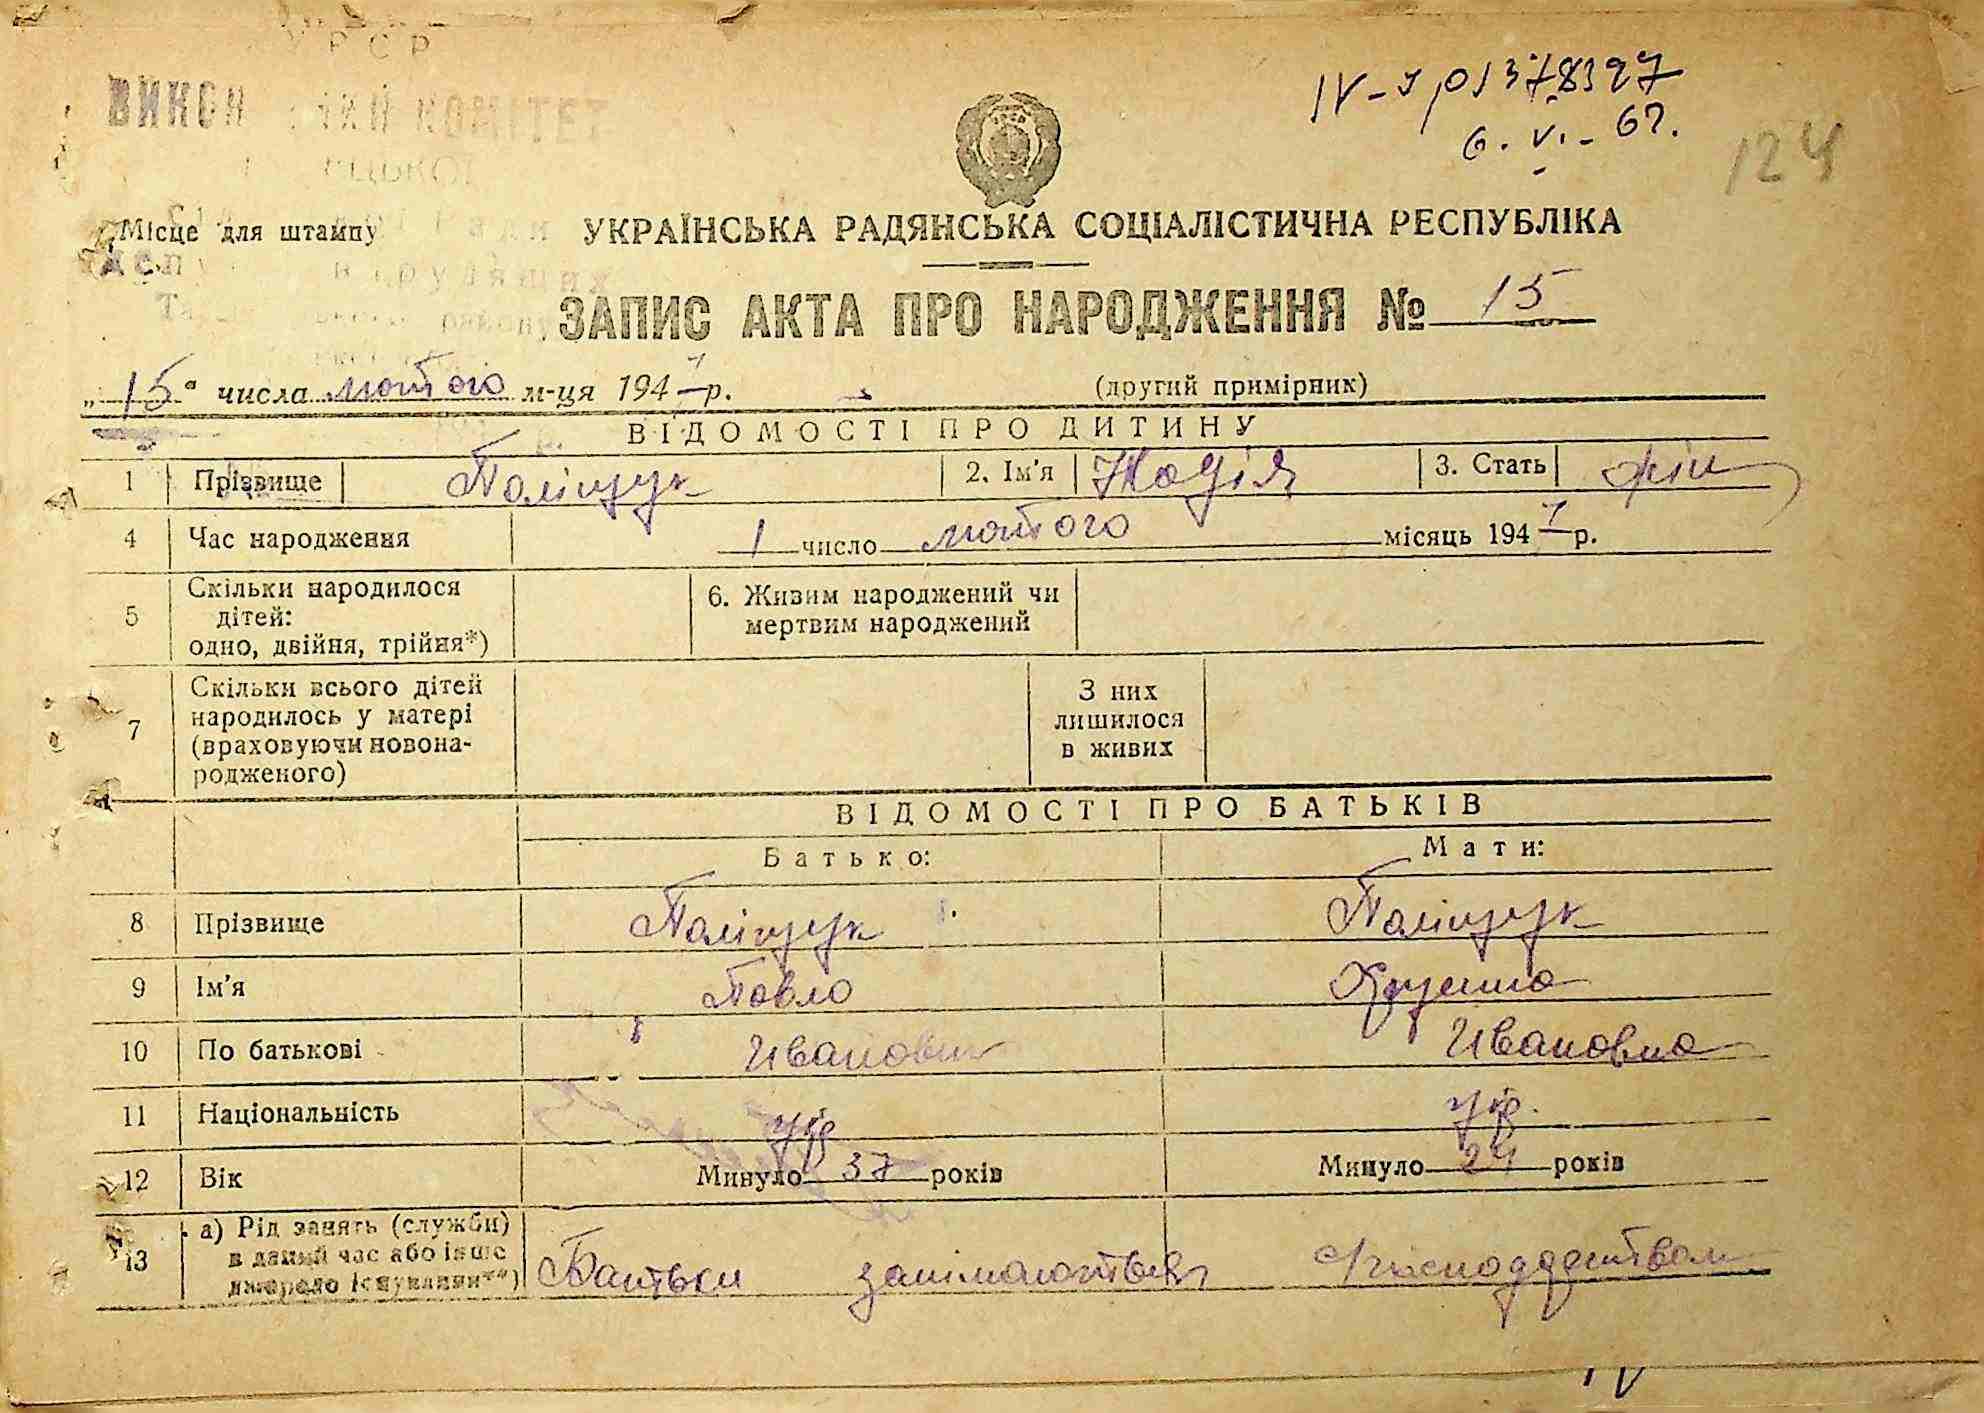 УРСР
КОМІТЕТ
IV-
6. VI. - 67.
124
Місце для штампу
УКРАЇНСЬКА РАДЯНСЬКА СОЦІАЛІСТИЧНА РЕСПУБЛІКА
ЗАПИС АКТА ПРО НАРОДЖЕННЯ № 15
„15" числа лютого м-ця 1947 р. (другий примірник)
ВІДОМОСТІ ПРО ДИТИНУ
1 Прізвище Поліщук 2. Ім'я Надія 3. Стать жін
4 Час народження 1 число лютого місяць 1947 р.
5 Скільки народилося
дітей:
одно, двійня, трійня*)
6. Живим народжений чи
мертвим народжений
7 Скільки всього дітей
народилось у матері
(враховуючи новона-
родженого)
З них
лишилося
в живих
ВІДОМОСТІ ПРО БАТЬКІВ
Батько: Мати:
8 Прізвище Поліщук Поліщук
9 Ім'я Павло
10 По батькові Иванович Ивановна
11 Національність укр укр.
12 Вік Минуло 37 років Минуло 24 років
13 а) Рід занять (служби)
в даний час або інше
джерело існування**)
Батьки занімаються